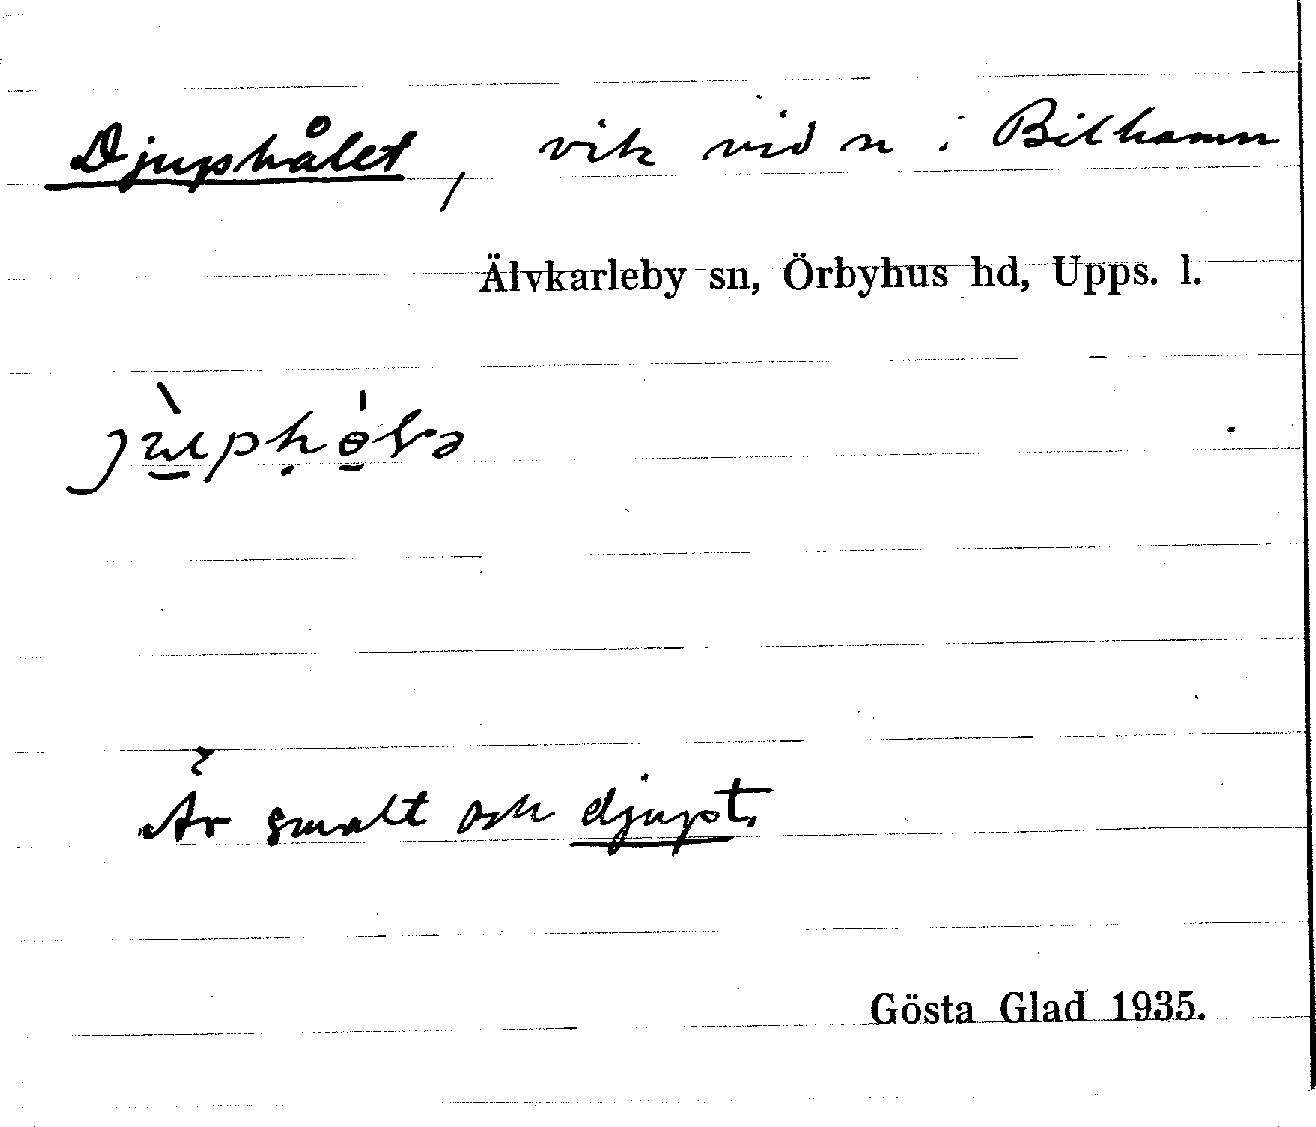 Djuphålet, vik vid n i Bilhamn
Älvkarleby sn, Örbyhus hd, Upps. l.
Är smalt och djupt.
Gösta Glad 1935.